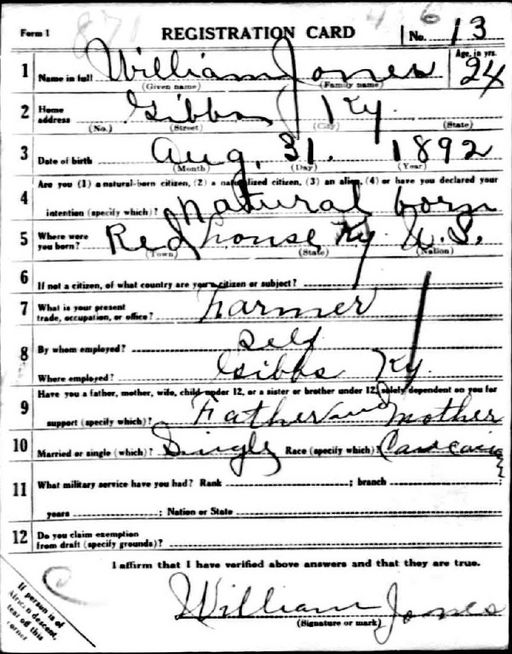 Form 1 REGISTRATION CARD No. 13
1 Name in full William Jones Age, in yrs. 24
(Given name) (Family name)
2 Home address Gibbs Ky.
(No.) (Street) (City) (State)
3 Date of birth Aug. 31. 1892
(Month) (Day) (Year)
4 Are you (1) a natural-born citizen, (2) a naturalized citizen, (3) an alien, (4) or have you declared your
intention (specify which)? natural born
5 Where were you born? Red house Ky U.S.
(Town) (State) (Nation)
6 If not a citizen, of what country are you a citizen or subject?
7 What is your present trade, occupation, or office? Farmer
8 By whom employed? Self
Where employed? Gibbs Ky.
9 Have you a father, mother, wife, child under 12, or a sister or brother under 12, solely dependent on you for
support (specify which)? Father and mother
10 Married or single (which)? Single Race (specify which)?
11 What military service have you had? Rank ; branch
years ; Nation or State
12 Do you claim exemption from draft (specify grounds)?
I affirm that I have verified above answers and that they are true.
William Jones
(Signature or mark)
If person is of
African descent,
tear off this
corner